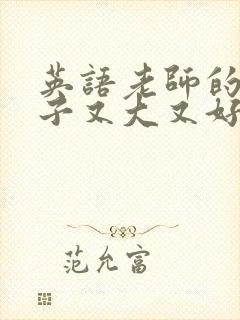 英語老師的
子又大又好
范允富